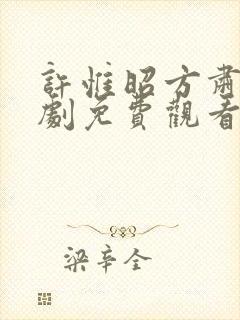 許惟昭方肅
劇免費觀看
梁辛全